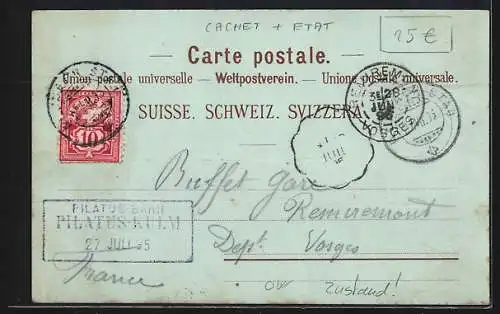 CACHET + ETAT
25 €
Carte postale.
Union postale universelle. — Weltpostverein. — Unione postale universale.
SUISSE. SCHWEIZ. SVIZZERA.
10
REMIREMONT
28
JUIL
95
VOSGES
Buffet Gare
Remiremont
Dept. Vosges
France
PILATUS-BAHN
PILATUS-KULM
27 JULI 95
ow Zustand!